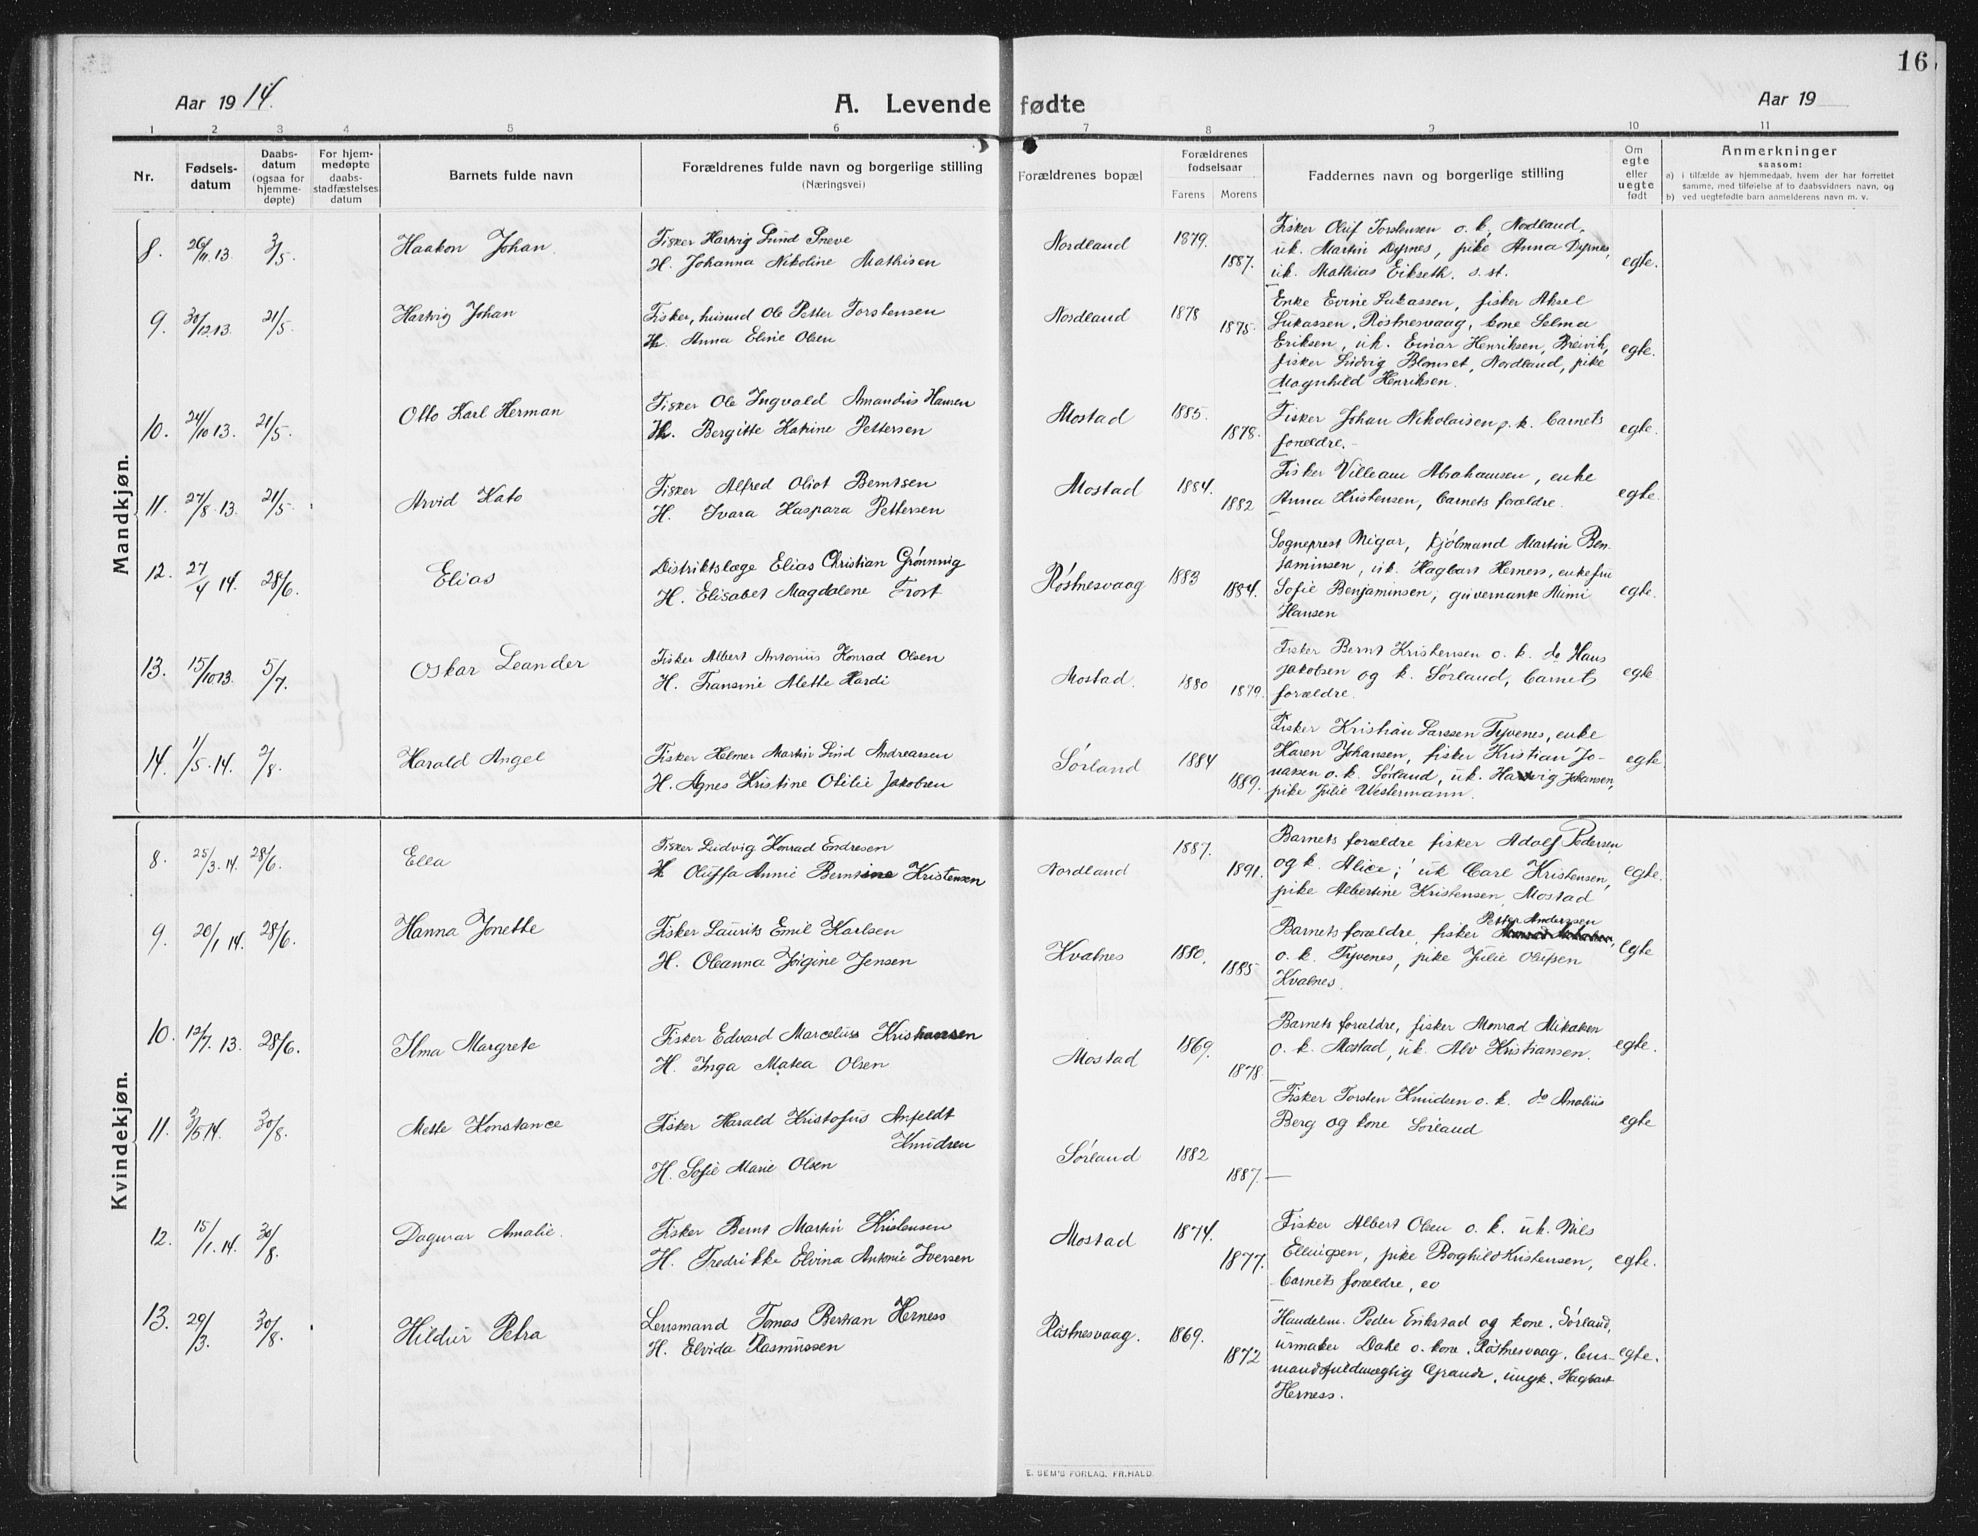 16
Aar 1914.
A. Levende fødte
Aar 19
1 2 3 4 5 6 7 8 9 10 11
Nr.
Fødselsdatum
Daabsdatum (ogsaa for hjemmedøpte)
For hjemmedøpte daabsstadfæstelses datum
Barnets fulde navn
Forældrenes fulde navn og borgerlige stilling
(Næringsvei)
Forældrenes bopæl
Forældrenes fødselsaar
Farens Morens
Faddernes navn og borgerlige stilling
Om egte eller uegte født
Anmerkninger
saasom:
a) i tilfælde av hjemmedaab, hvem der har forrettet samme, med tilføielse af to daabsvidners navn, og
b) ved uegtefødte barn anmelderens navn m. v.
Mandkjøn.
8. 26/11.13 3/5. Haakon Johan.
Fisker Hartvig Lund Sneve
H. Johanna Nikoline Mathisen
Nordland 1879. 1887.
Fisker Oluf Torstensen o. k. Nordland,
uk. Martin Dyrnes, pike Anna Dyrnes,
uk. Mathias Eikseth. s. st.
egte.
9. 30/12.13 21/5. Hartvig Johan
Fisker, husmd Ole Petter Torstensen
H. Anna Eline Olsen
Nordland 1878 1875.
Enke Evine Lukassen, fisker Aksel
Lukassen, Røstnesvaag, kone Selma
Eriksen, uk. Einar Henriksen, Breivik,
fisker Ludvig Blomset, Nordland, pike
Magnhild Henriksen.
egte.
10. 24/10 13. 21/5. Otto Karl Herman
Fisker Ole Ingvald Amandus Hansen
H. Bergitte Katrine Pettersen
Mostad 1885. 1878.
Fisker Johan Nikolaisen o. k. barnets
forældre.
egte.
11. 27/8.13. 21/5. Arvid Kato
Fisker Alfred Oliot Berntsen
H. Ivara Kaspara Pettersen
Mostad 1884. 1882
Fisker Villeam Abrahamsen, enke
Anna Kristensen, barnets forældre.
egte.
12. 27/4 14. 28/6. Elias
Distriktslæge Elias Christian Grønnvig
H. Elisabet Magdalene Frost
Røstnesvaag 1883 1884.
Sogneprest Migar, kjøbmand Martin Ben-
jaminsen, uk. Hagbart Herness, enkefru
Sofie Benjaminsen, guvernante Mimi
Hansen
egte.
13. 15/10 13. 5/7. Oskar Leander
Fisker Albert Antonius Konrad Olsen
H. Fransine Alette Hardi
Mostad. 1880 1879.
Fisker Bernt Kristensen o. k. do Hans
Jakobsen og k. Sørland, barnets
forældre.
egte.
14. 1/5.14. 2/8. Harald Angel
Fisker Helmer Martin Lind Andreassen
H. Agnes Kristine Otilie Jakobsen
Sørland 1884 1889.
Fisker Kristian Larssen Tyvenes, enke
Karen Johansen, fisker Kristian Jo-
nassen o. k. Sørland, uk. Hartvig Johansen,
pike Julie Westermann.
egte.
Kvindekjøn.
8. 25/3.14. 28/6. Ella
Fisker Ludvig Konrad Endresen
H. Oluffa Annie Berntine Kristensen
Nordland 1887. 1891.
Barnets forældre fisker Adolf Pedersen
og k. Alice; uk Carl Kristensen,
pike Albertine Kristensen, Mostad
egte.
9. 20/1 14. 28/6. Hanna Jonette
Fisker Laurits Emil Karlsen
H. Oleanna Jørgine Jensen
Kvalnes 1880. 1885.
Petter Anderssen
Barnets forældre, fisker
o. k. Tyvenes, pike Julie Olufsen
Kvalnes.
egte
10. 12/7. 13. 28/6. Ilma Margrete
Fisker Edvard Marcelius Kristiansen
H. Inga Matea Olsen
Mostad 1869. 1878
Barnets forældre, fisker Monrad Mikalsen
o. k. Mostad, uk. Alv Kristiansen.
egte.
11. 3/5 14. 30/8. Mette Konstance
Fisker Harald Kristofus Anfeldt
Knudsen
H. Sofie Marie Olsen
Sørland 1882 1887.
Fisker Torsten Knudsen o. k. do Analius
Berg og kone Sørland
egte
12. 15/1.14. 30/8. Dagmar Amalie.
Fisker Bernt Martin Kristensen
H. Fredrikke Elvina Antonie Iversen
Mostad 1874. 1877.
Fisker Albert Olsen o. k. uk. Nils
Ellingsen, pike Borghild Kristensen,
barnets forældre, eo
egte.
13. 29/3. 30/8. Hildur Petra
Lensmand Tomas Bertran Herness
H. Elvida Rasmussen
Røstnesvaag. 1869. 1872
Handelsm. Peder Erikstad og kone. Sørland,
urmaker Dahl o. kone, Røstnesvaag, lens-
mandsfuldmægtig Grande, ungk. Hagbart
Herness.
egte.
E. SEM'S FORLAG, FR.HALD.